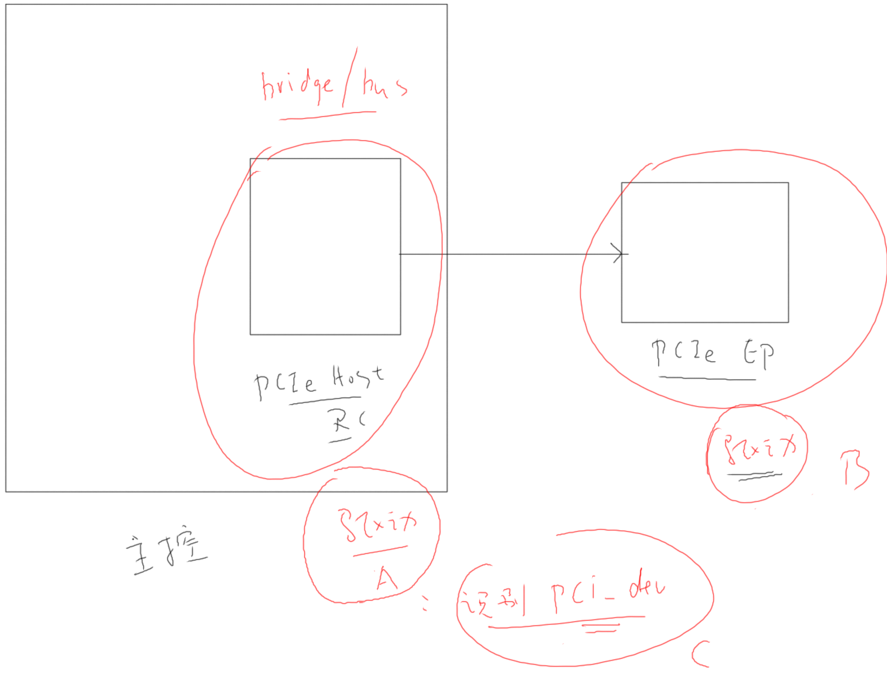 bridge/bus
PCIe Host
RC
PCIe EP
B
主控
A
: 识别 pci_dev
C